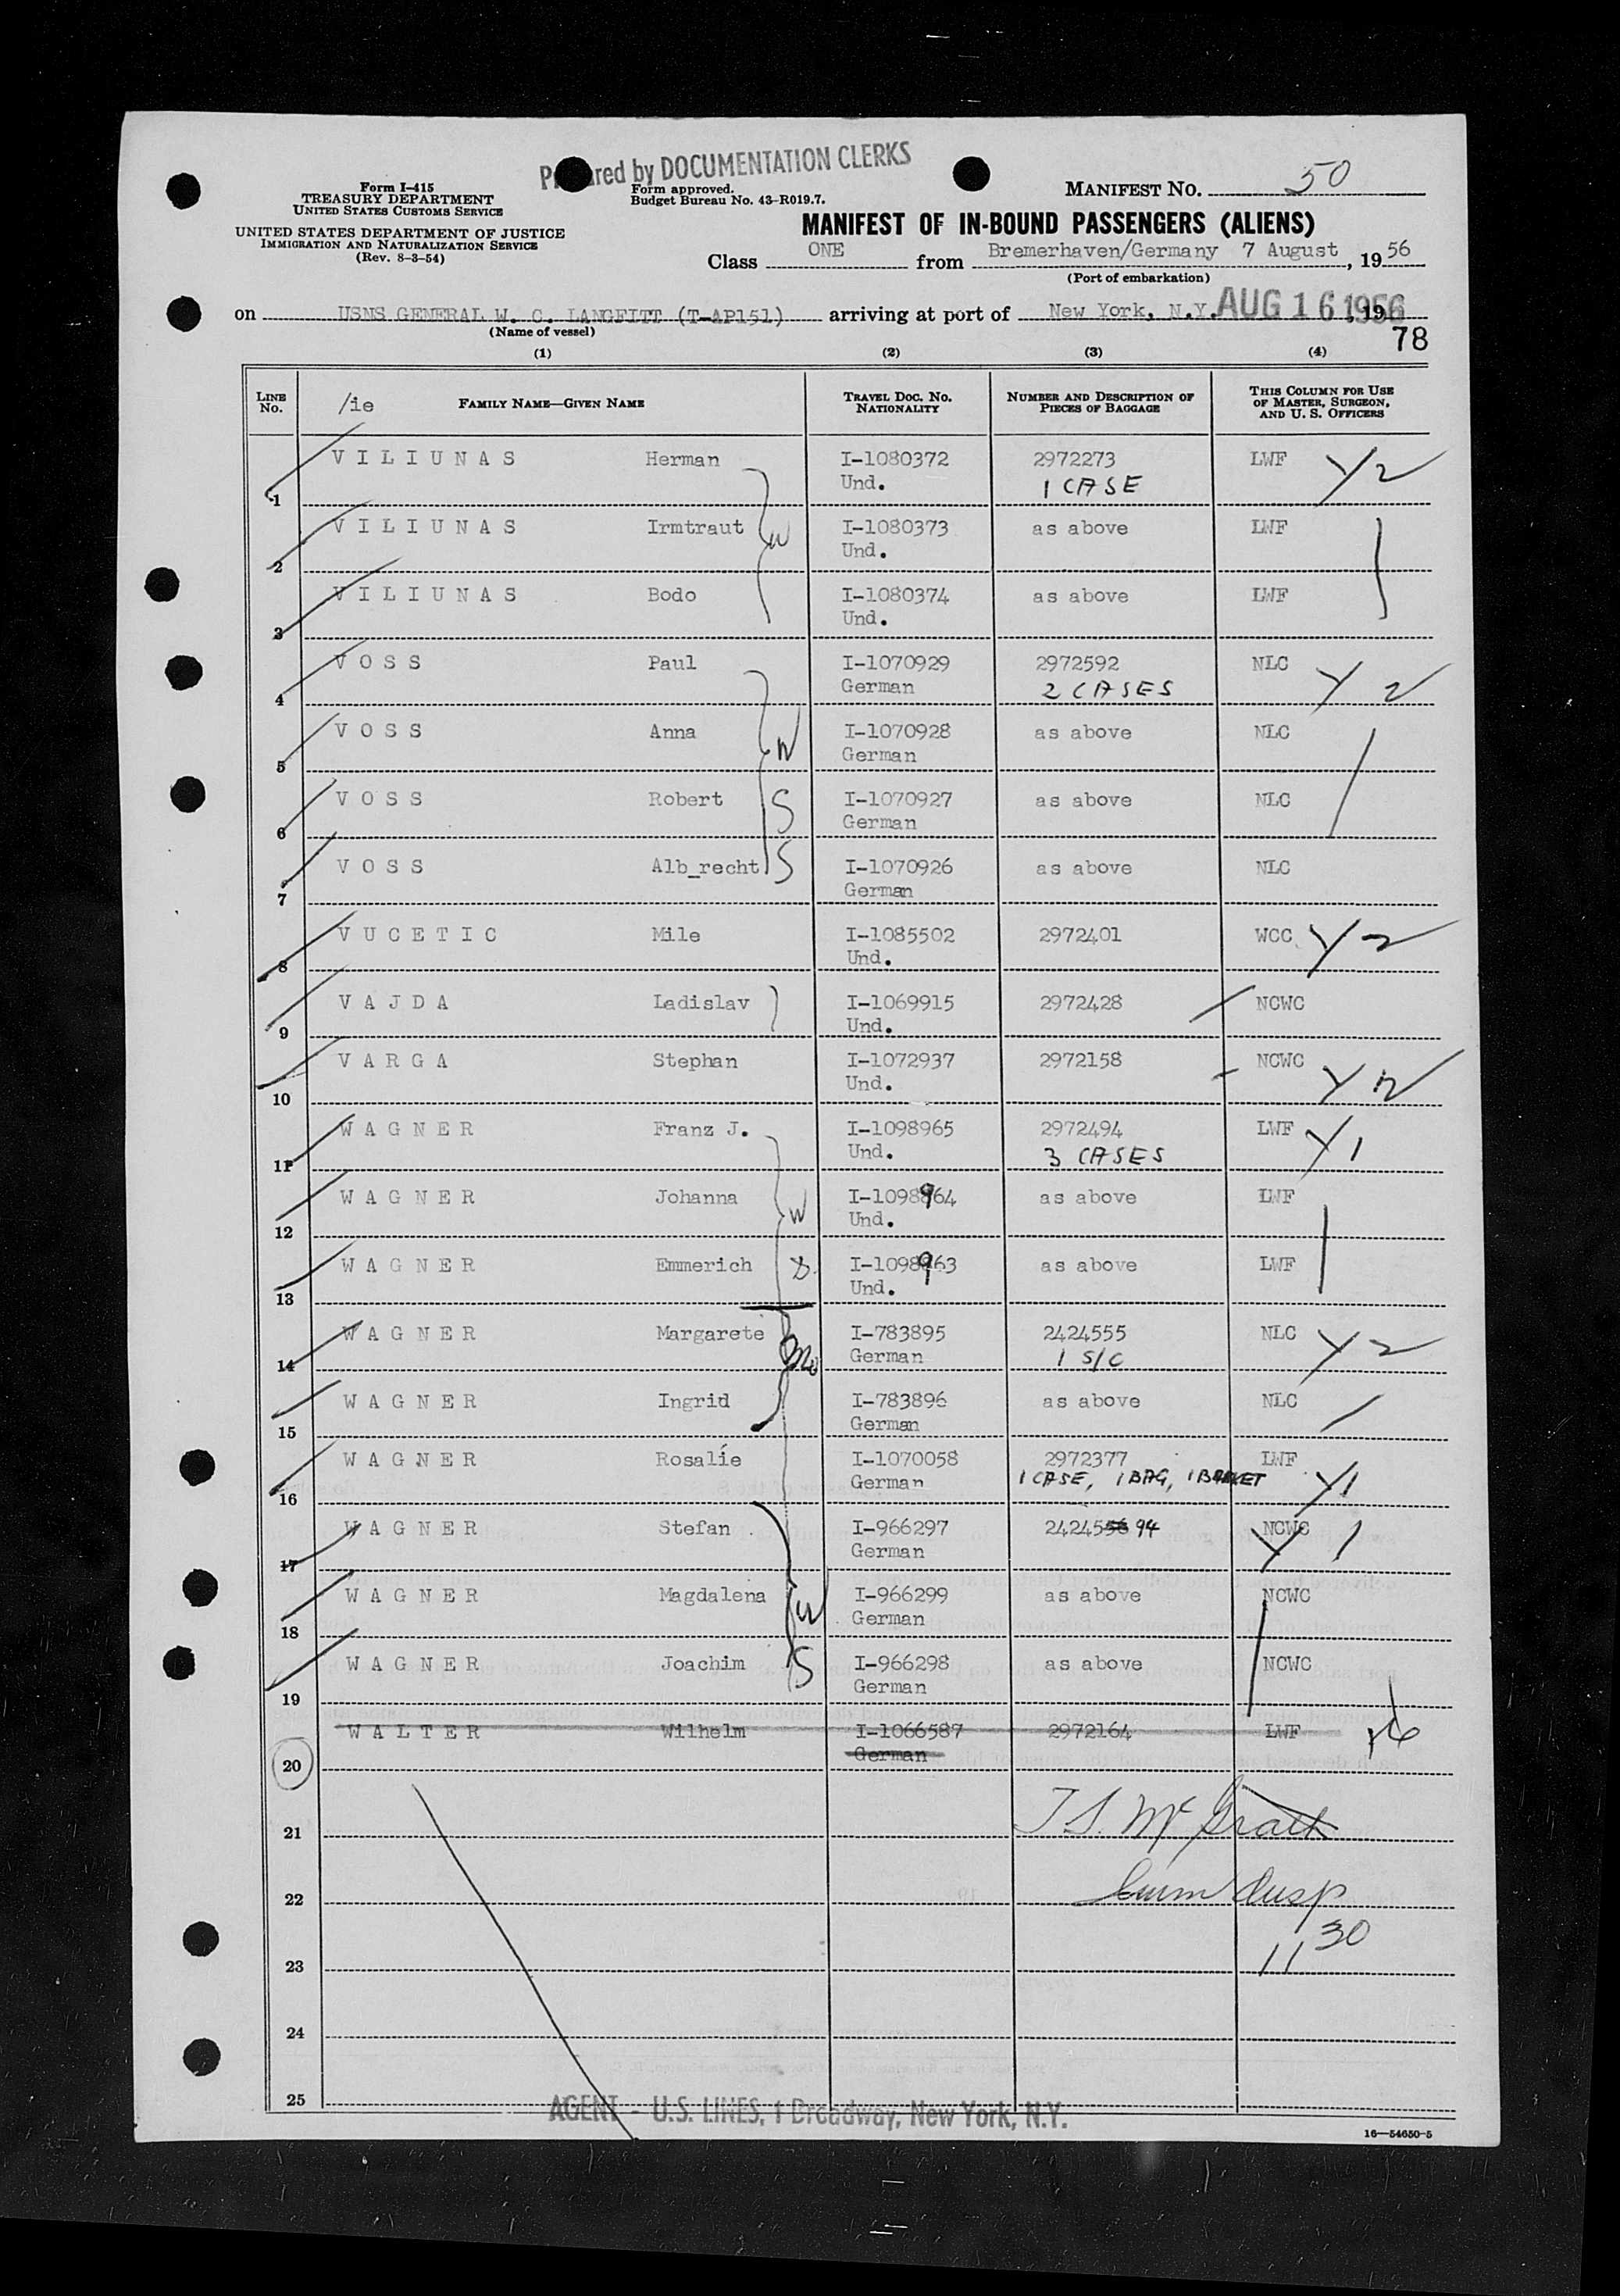 Prepared by DOCUMENTATION CLERKS
Form I-415
TREASURY DEPARTMENT
UNITED STATES CUSTOMS SERVICE
UNITED STATES DEPARTMENT OF JUSTICE
IMMIGRATION AND NATURALIZATION SERVICE
(Rev. 8-3-54)
Form approved.
Budget Bureau No. 43-R019.7.
MANIFEST NO. 50
MANIFEST OF IN-BOUND PASSENGERS (ALIENS)
Class ONE from Bremerhaven/Germany 7 August, 1956
(Port of embarkation)
on USNS GENERAL W. C. LANGFITT (T-AP151) arriving at port of New York, N.Y. AUG 16 1956, 19
(Name of vessel)
78
(1) (2) (3) (4)
LINE NO. /ie FAMILY NAME—GIVEN NAME TRAVEL DOC. NO. NATIONALITY NUMBER AND DESCRIPTION OF PIECES OF BAGGAGE THIS COLUMN FOR USE OF MASTER, SURGEON, AND U. S. OFFICERS
1 VILIUNAS Herman I-1080372 2972273 LWF Y2
Und. 1 CASE
2 VILIUNAS Irmtraut W I-1080373 as above LWF
Und.
3 VILIUNAS Bodo I-1080374 as above LWF
Und.
4 VOSS Paul I-1070929 2972592 NLC Y 2
German 2 CASES
5 VOSS Anna W I-1070928 as above NLC
German
6 VOSS Robert S I-1070927 as above NLC
German
7 VOSS Alb_recht S I-1070926 as above NLC
German
8 VUCETIC Mile I-1085502 2972401 WCC Y2
Und.
9 VAJDA Ladislav I-1069915 2972428 NCWC
Und.
10 VARGA Stephan I-1072937 2972158 NCWC Y2
Und.
11 WAGNER Franz J. I-1098965 2972494 LWF Y1
Und. 3 CASES
12 WAGNER Johanna W I-1098964 as above LWF
Und.
13 WAGNER Emmerich S I-1098963 as above LWF
Und.
14 WAGNER Margarete I-783895 2424555 NLC Y2
German 1 S/C
15 WAGNER Ingrid I-783896 as above NLC
German
16 WAGNER Rosalie I-1070058 2972377 LWF Y1
German 1 CASE, 1 BAG, 1 BASKET
17 WAGNER Stefan I-966297 2424556 94 NCWC Y 1
German
18 WAGNER Magdalena W I-966299 as above NCWC
German
19 WAGNER Joachim S I-966298 as above NCWC
German
20 WALTER Wilhelm I-1066587 2972164 LWF
German
21 T S. McGrath
22 Imm Insp
23 11 30
24
25
AGENT - U.S. LINES, 1 Broadway, New York, N.Y.
16—54650-5